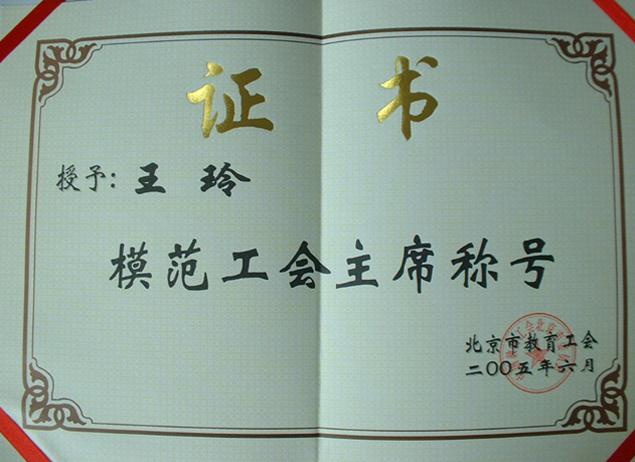 证书
授予：王玲
模范工会主席称号
北京市教育工会
二〇〇五年六月